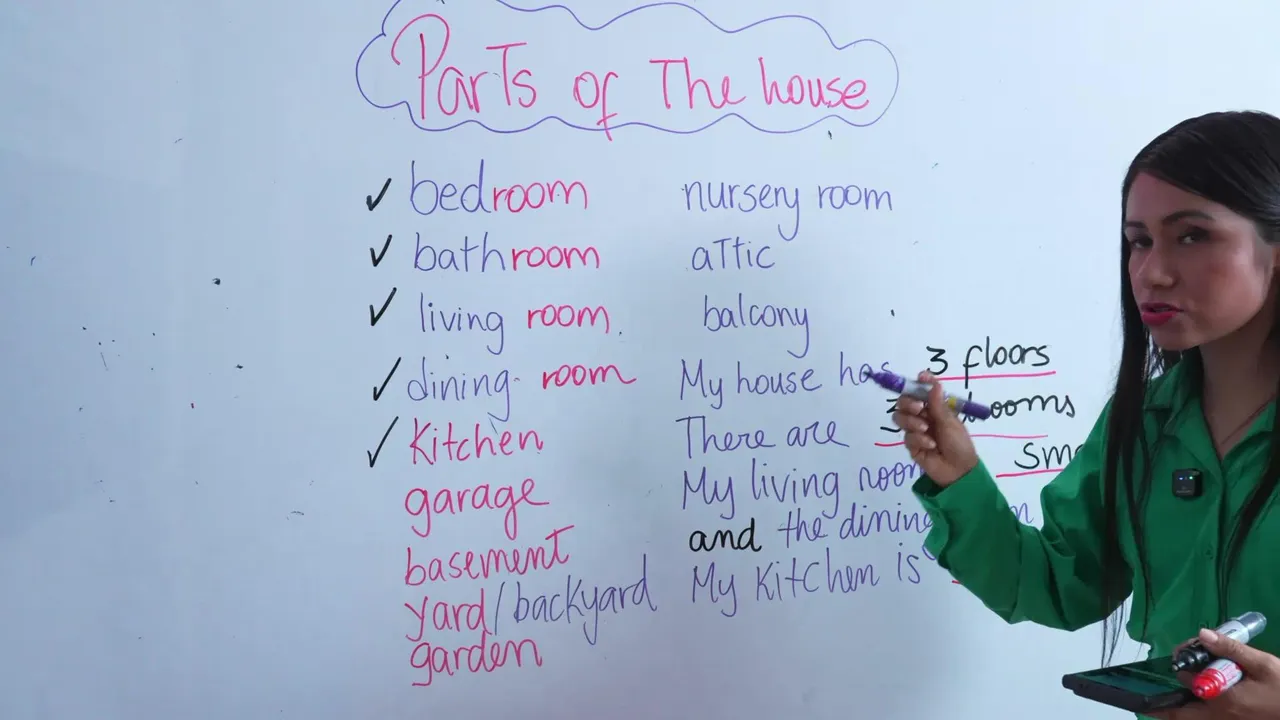 Parts of The house
✓ bedroom
✓ bathroom
✓ living room.
✓ dining room
✓ Kitchen
garage
basement
yard/backyard
garden
nursery room
attic
balcony
My house has 3 floors
There are 3
My living room
and the dining
My Kitchen is